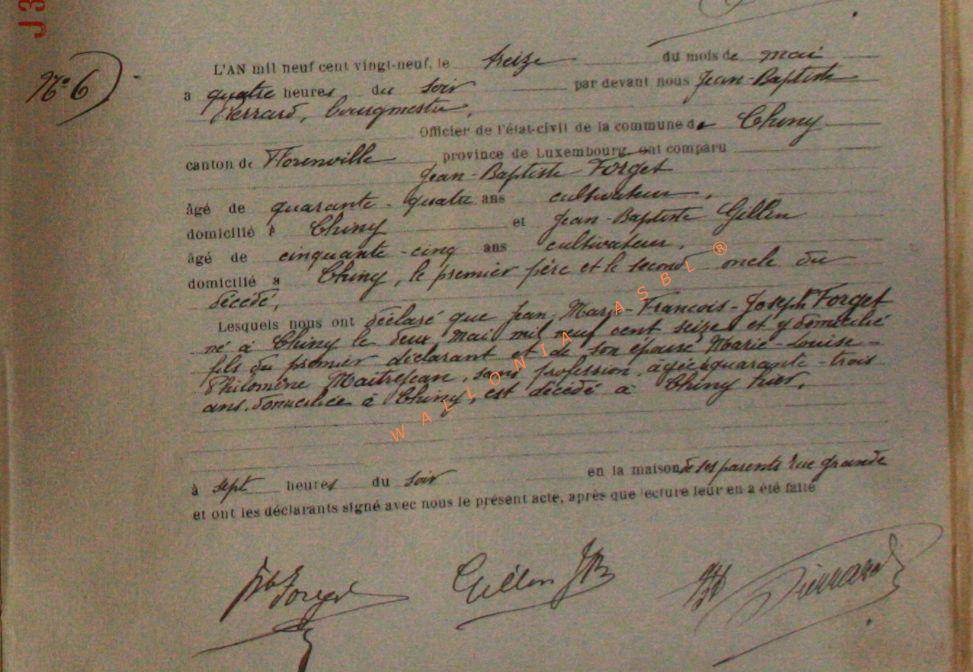 J3
N° 6
L'AN mil neuf cent vingt-neuf, le treize du mois de mai
à quatre heures du soir par devant nous Jean-Baptiste
Pierrard, bourgmestre,
Officier de l'état-civil de la commune de Chiny
canton de Florenville province de Luxembourg, ont comparu
Jean-Baptiste Forget
âgé de quarante-quatre ans cultivateur,
domicilié à Chiny et Jean-Baptiste Gillen
âgé de cinquante-cinq ans cultivateur,
domicilié à Chiny, le premier père et le second oncle du
décédé,
Lesquels nous ont déclaré que Jean, Marie-François-Joseph Forget
né à Chiny le deux mai mil neuf cent seize et y domicilié
fils du premier déclarant et de son épouse Marie-Louise-
Philomène Maitrejean, sans profession, âgée quarante-trois
ans, domiciliée à Chiny, est décédé à Chiny hier,
à sept heures du soir en la maison de ses parents rue grande
et ont les déclarants signé avec nous le présent acte, après que lecture leur en a été faite
Jb Forget Gillen JB JB Pierrard
WALLONIA ASBL ®